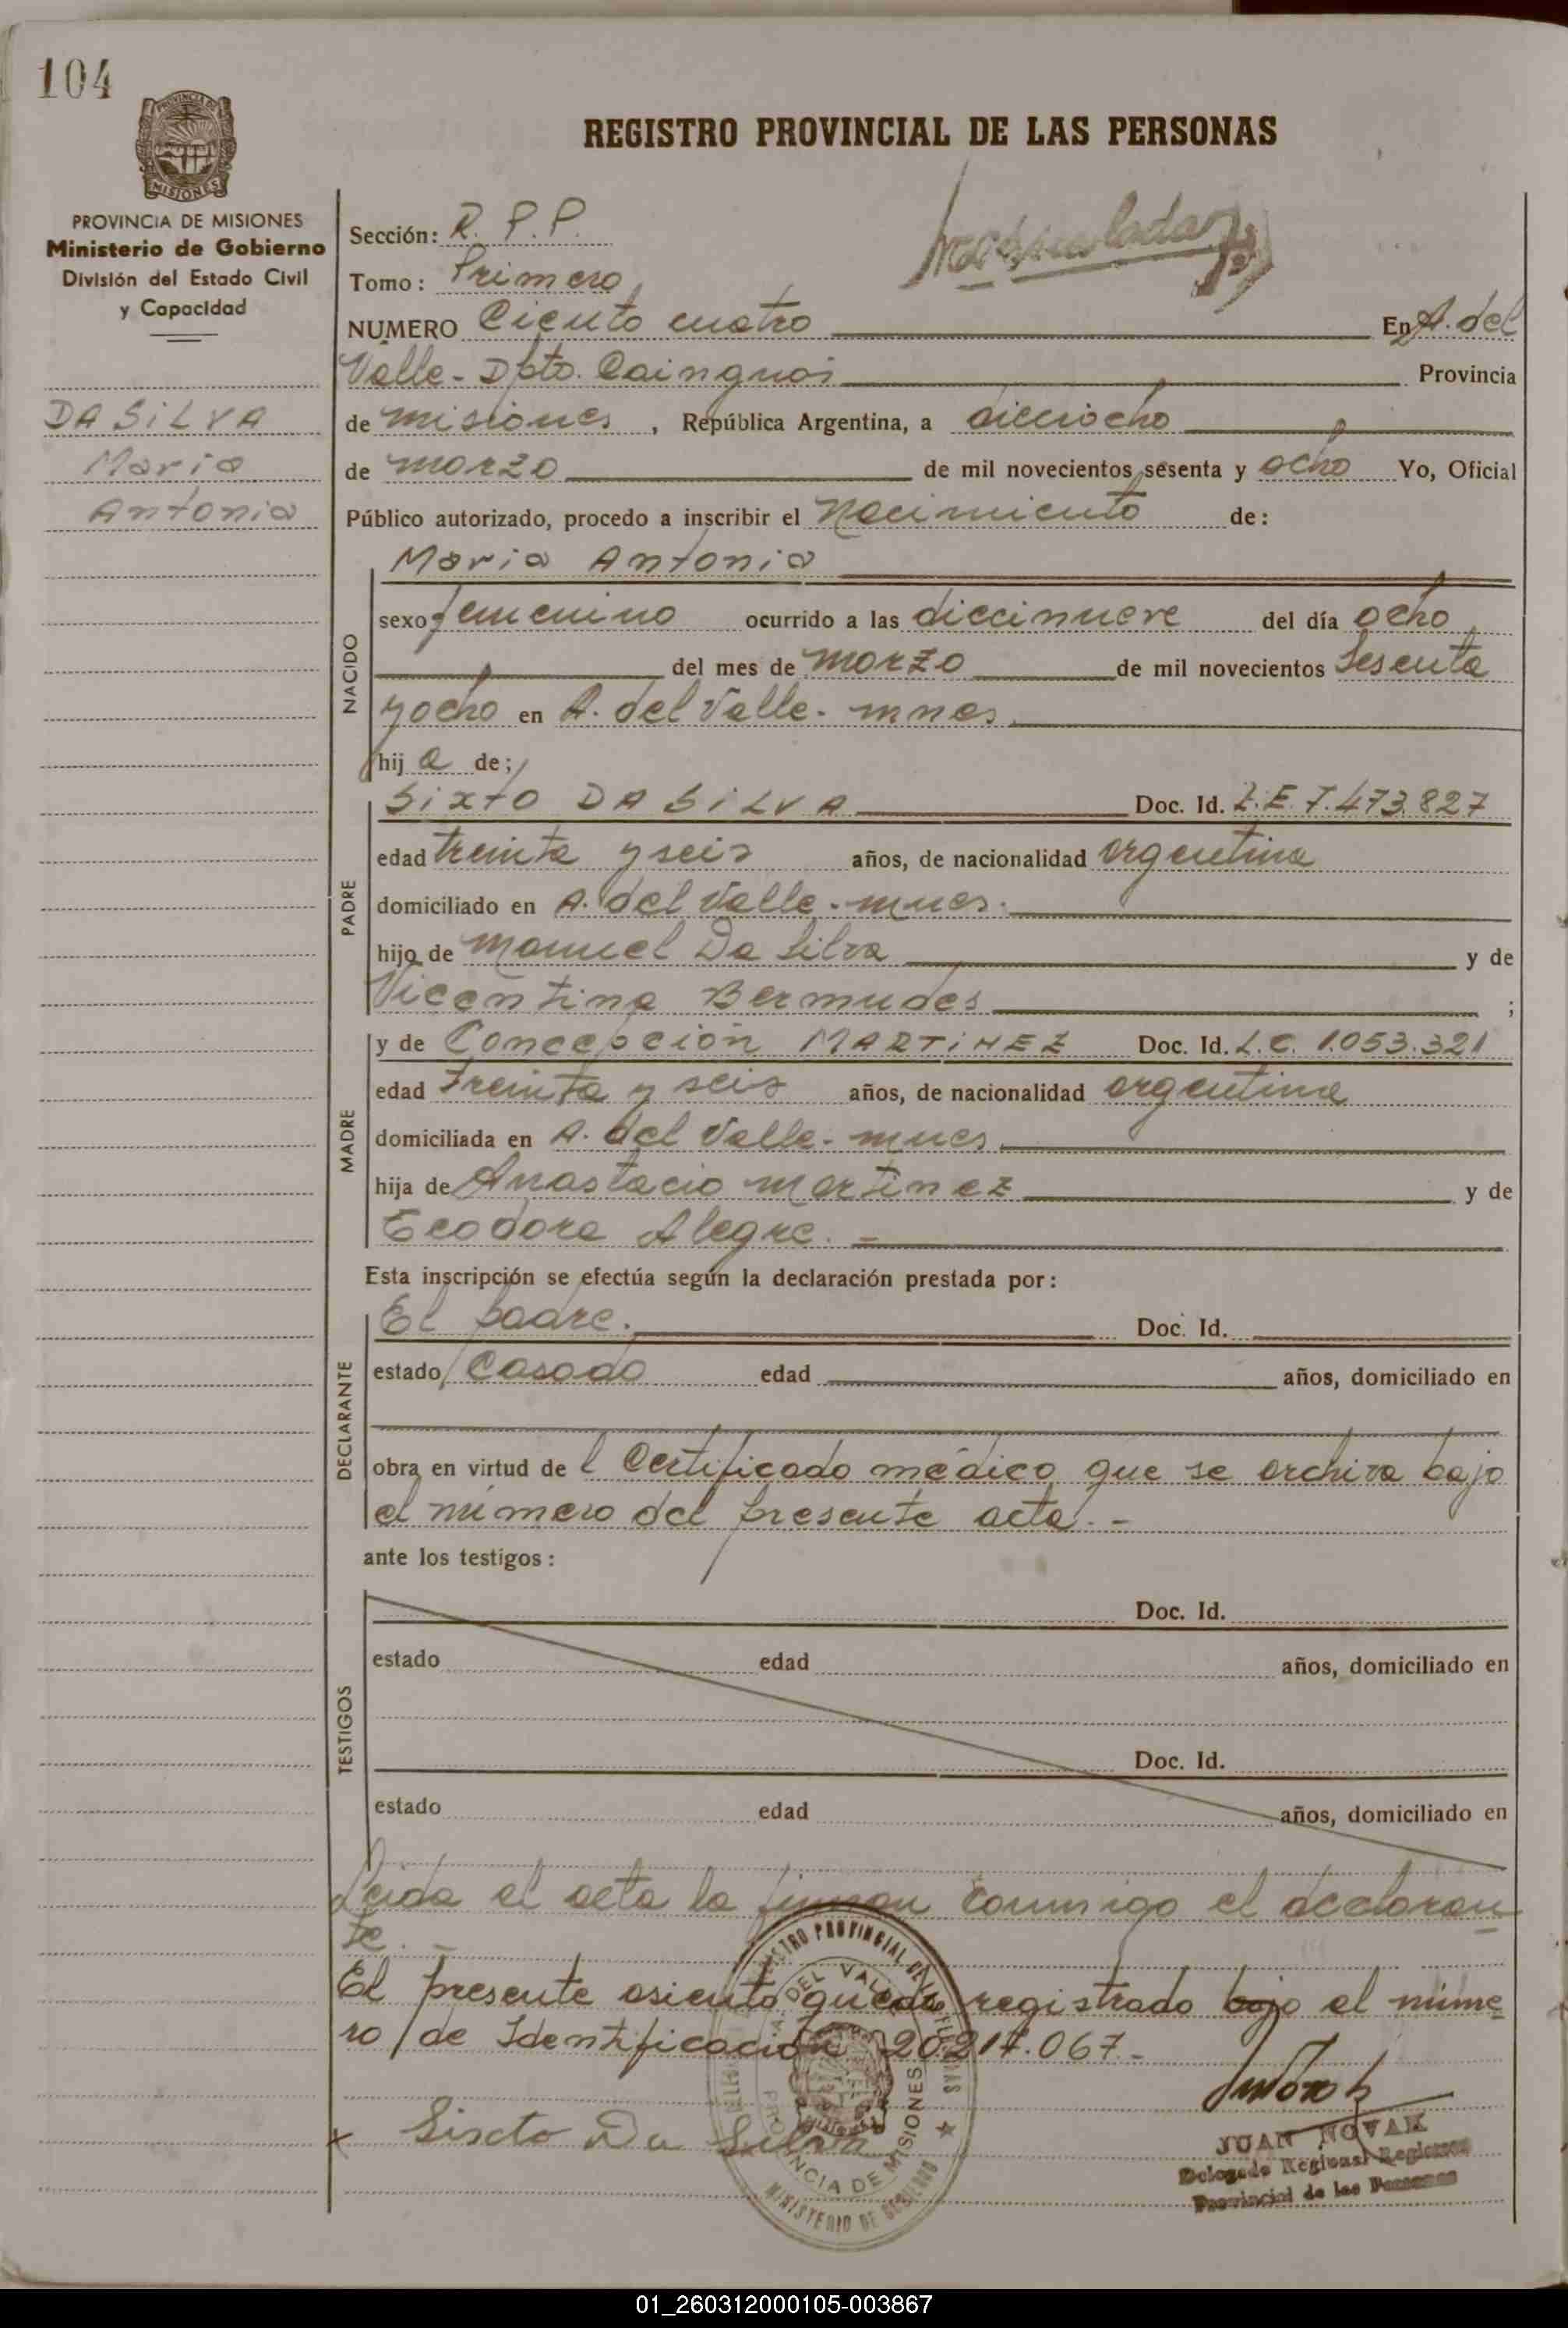 104
PROVINCIA DE MISIONES
Ministerio de Gobierno
División del Estado Civil
y Capacidad
DA SILVA
Maria
Antonia
REGISTRO PROVINCIAL DE LAS PERSONAS
Sección: R. P. P.
Tomo: Primero
NUMERO Ciento cuatro En A. del
Valle - Dpto. Cainguas Provincia
de misiones, República Argentina, a dieciocho
de marzo de mil novecientos sesenta y ocho Yo, Oficial
Público autorizado, procedo a inscribir el Nacimiento de:
NACIDO
Maria Antonia
sexo femenino ocurrido a las diecinueve del día ocho
del mes de marzo de mil novecientos sesenta
y ocho en A. del Valle - mnes.
hij a de;
PADRE
Sixto DA SILVA Doc. Id. L.E. 7.473.827
edad treinta y seis años, de nacionalidad argentina
domiciliado en A. del Valle - mnes.
hijo de Manuel Da Silva y de
Vicentina Bermudes ;
MADRE
y de Concepción MARTINEZ Doc. Id. L.C. 1.053.321
edad treinta y seis años, de nacionalidad argentina
domiciliada en A. del Valle - mnes
hija de Anastacio Martinez y de
Teodora Alegre. -
Esta inscripción se efectúa según la declaración prestada por:
DECLARANTE
El padre. Doc. Id.
estado Casado edad años, domiciliado en
obra en virtud de l Certificado médico que se archiva bajo
el número del presente acta. -
ante los testigos:
TESTIGOS
Doc. Id.
estado edad años, domiciliado en
Doc. Id.
estado edad años, domiciliado en
Leida el acta la firman conmigo el declaran
te. -
El presente asiento queda registrado bajo el núme
ro de Identificación 20.217.067.-
x Sixto Da Silva
JUAN NOVAK
Delegado Regional Registro
Provincial de las Personas
PROVINCIA DE MISIONES
MINISTERIO DE GOBIERNO
01_260312000105-003867